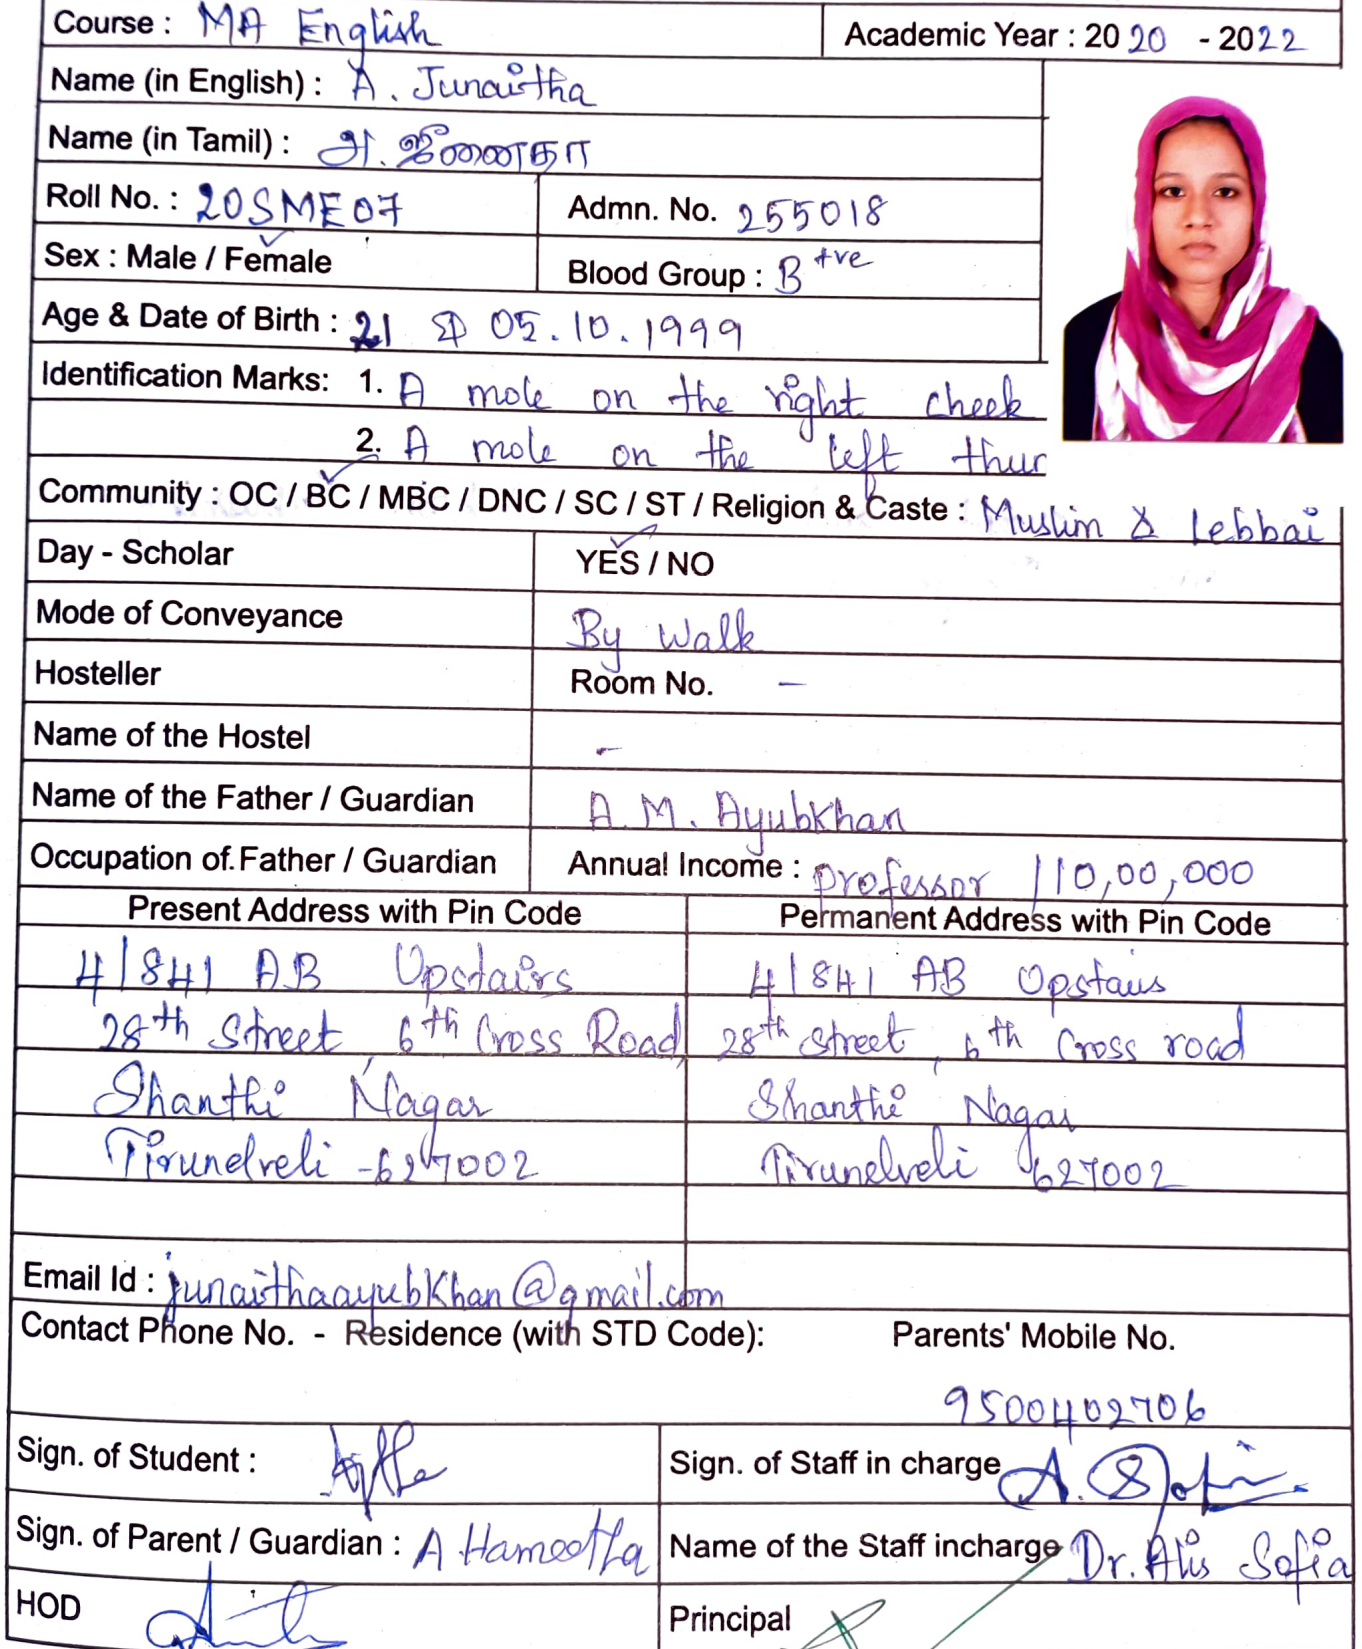 Course : MA English Academic Year : 2020 - 2022
Name (in English) : A. Junaitha
Name (in Tamil) : அ. ஜீனைதா
Roll No. : 20SME07 Admn. No. 255018
Sex : Male / Female Blood Group : B +ve
Age & Date of Birth : 21 & 05.10.1999
Identification Marks: 1. A mole on the right cheek
2. A mole on the left
Community : OC / BC / MBC / DNC / SC / ST / Religion & Caste : Muslim & Lebbai
Day - Scholar YES / NO
Mode of Conveyance By Walk
Hosteller Room No. -
Name of the Hostel -
Name of the Father / Guardian A.M. Ayubkhan
Occupation of Father / Guardian Annual Income : professor /10,00,000
Present Address with Pin Code Permanent Address with Pin Code
4/841 AB Upstairs 4/841 AB Upstairs
28th Street, 6th Cross Road, 28th street, 6th Cross road
Shanthi Nagar Shanthi Nagar
Tirunelveli - 627002 Tirunelveli 627002
Email Id : junaithaayubkhan@gmail.com
Contact Phone No. - Residence (with STD Code): Parents' Mobile No.
9500402706
Sign. of Student : Sign. of Staff in charge
Sign. of Parent / Guardian : A Hameetha Name of the Staff incharge Dr. Alis Sofia
HOD Principal